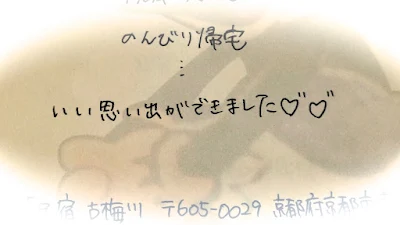 のんびり帰宅
⋮
いい思い出ができました♡♡
宿 古梅川 〒605-0029 京都府京都市